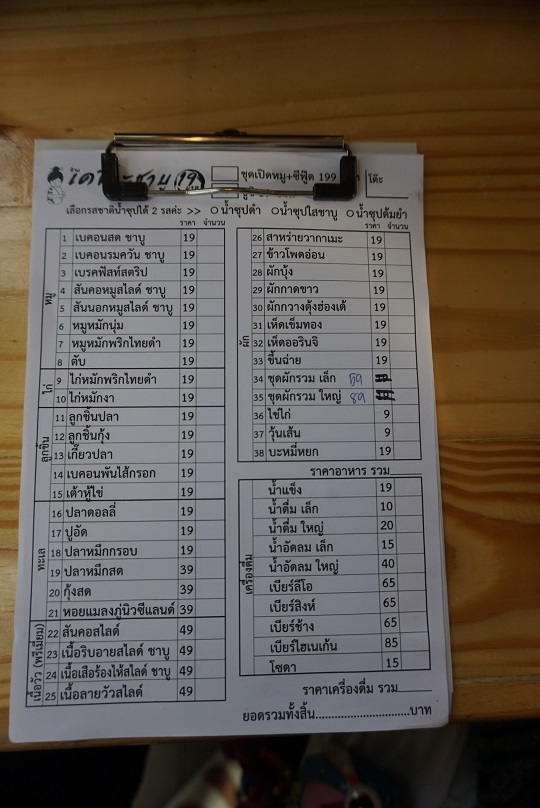 ชาบู 19
ชุดเปิดหมู+ซีฟู้ด 199
โต๊ะ
เลือกรสชาติน้ำซุปได้ 2 รสค่ะ >> น้ำซุปดำ น้ำซุปใสชาบู น้ำซุปต้มยำ
ราคา จำนวน
หมู
1 เบคอนสด ชาบู 19
2 เบคอนรมควัน ชาบู 19
3 เบรคฟัสท์สตริป 19
4 สันคอหมูสไลด์ ชาบู 19
5 สันนอกหมูสไลด์ ชาบู 19
6 หมูหมักนุ่ม 19
7 หมูหมักพริกไทยดำ 19
8 ตับ 19
ไก่
9 ไก่หมักพริกไทยดำ 19
10 ไก่หมักงา 19
ลูกชิ้น
11 ลูกชิ้นปลา 19
12 ลูกชิ้นกุ้ง 19
13 เกี๊ยวปลา 19
14 เบคอนพันไส้กรอก 19
15 เต้าหู้ไข่ 19
ทะเล
16 ปลาดอลลี่ 19
17 ปูอัด 19
18 ปลาหมึกกรอบ 19
19 ปลาหมึกสด 39
20 กุ้งสด 39
21 หอยแมลงภู่นิวซีแลนด์ 39
เนื้อวัว (พรีเมี่ยม)
22 สันคอสไลด์ 49
23 เนื้อริบอายสไลด์ ชาบู 49
24 เนื้อเสือร้องไห้สไลด์ ชาบู 49
25 เนื้อลายวัวสไลด์ 49
ราคา จำนวน
ผัก
26 สาหร่ายวากาเมะ 19
27 ข้าวโพดอ่อน 19
28 ผักบุ้ง 19
29 ผักกาดขาว 19
30 ผักกวางตุ้งฮ่องเต้ 19
31 เห็ดเข็มทอง 19
32 เห็ดออรินจิ 19
33 ขึ้นฉ่าย 19
34 ชุดผักรวม เล็ก 59
35 ชุดผักรวม ใหญ่ 89
36 ไข่ไก่ 9
37 วุ้นเส้น 9
38 บะหมี่หยก 19
ราคาอาหาร รวม
เครื่องดื่ม
น้ำแข็ง 19
น้ำดื่ม เล็ก 10
น้ำดื่ม ใหญ่ 20
น้ำอัดลม เล็ก 15
น้ำอัดลม ใหญ่ 40
เบียร์ลีโอ 65
เบียร์สิงห์ 65
เบียร์ช้าง 65
เบียร์ไฮเนเก้น 85
โซดา 15
ราคาเครื่องดื่ม รวม
ยอดรวมทั้งสิ้น..............................บาท